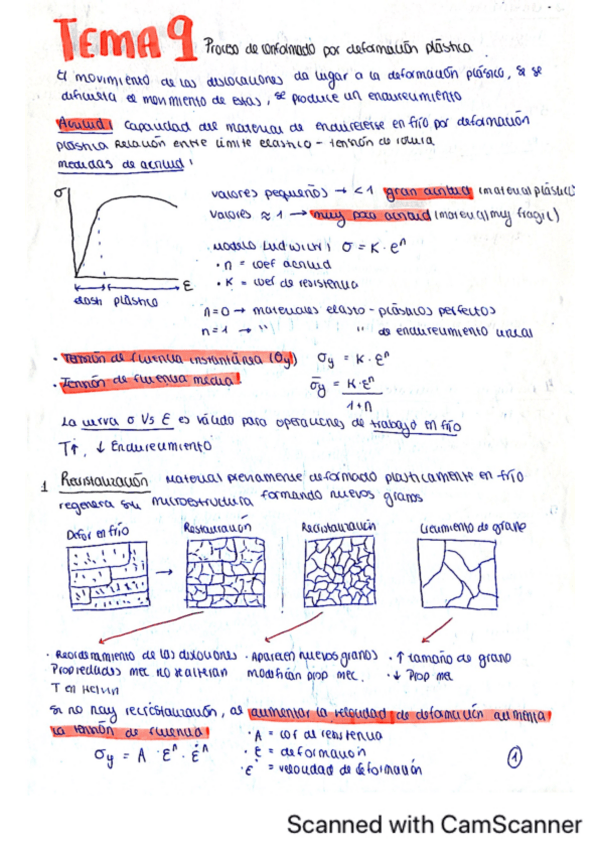 TEMA 9 Proceso de conformado por deformación plástica
El movimiento de las dislocaciones da lugar a la deformación plástica, si se
dificulta el movimiento de estas, se produce un endurecimiento
Acritud: capacidad del material de endurecerse en frío por deformación
plástica Relación entre límite elástico - tensión de rotura
medidas de acritud:
σ
valores pequeños → < 1 gran acritud (material plástico
valores ≈ 1 → muy poca acritud (material muy fragil)
modelo Ludwich: σ = K · e^n
· n = coef acritud
· K = coef de resistencia
ε
elast plástico
n=0 → materiales elasto-plásticos perfectos
n=1 → " " de endurecimiento lineal
· Tensión de fluencia instantánea (σy) σy = K · ε^n
· Tensión de fluencia media: σ̄y = K·ε^n / 1+n
La curva σ Vs ε es válido para operaciones de trabajo en frío
T↑, ↓ Endurecimiento
1 Recristalización Material previamente deformado plasticamente en frío
regenera su microestructura formando nuevos granos
Defor en frío Restauración Recristalización Crecimiento de grano
· Reordenamiento de las dislociones · Aparecen nuevos granos · ↑ tamaño de grano
Propiedades mec no se alteran modifican prop mec. · ↓ Prop mec
T en Kelvin
Si no hay recristalización, al aumentar la velocidad de deformación aumenta
la tensión de fluencia:
σy = A · ε^n · ε̇^n
· A = cof de resistencia
· ε = deformación
· ε̇ = velocidad de deformación
1
Scanned with CamScanner